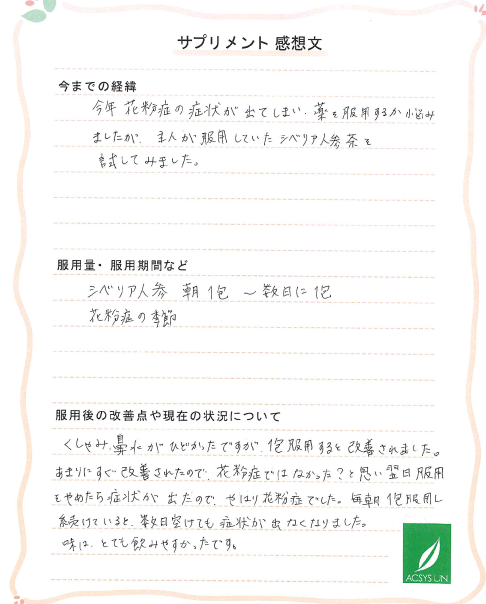 サプリメント 感想文
今までの経緯
今年 花粉症の症状が出てしまい、薬を服用するか悩み
ましたが、主人が服用していたシベリア人参茶を
試してみました。
服用量・服用期間など
シベリア人参 朝1包 〜数日に1包
花粉症の季節
服用後の改善点や現在の状況について
くしゃみ、鼻水がひどかったですが、1包服用すると改善されました。
あまりにすぐ改善されたので、花粉症ではなかった?と思い翌日服用
をやめたら症状が出たので、やはり花粉症でした。毎朝1包服用し
続けていると、数日空けても症状が出なくなりました。
味は、とても飲みやすかったです。
ACSYS UN